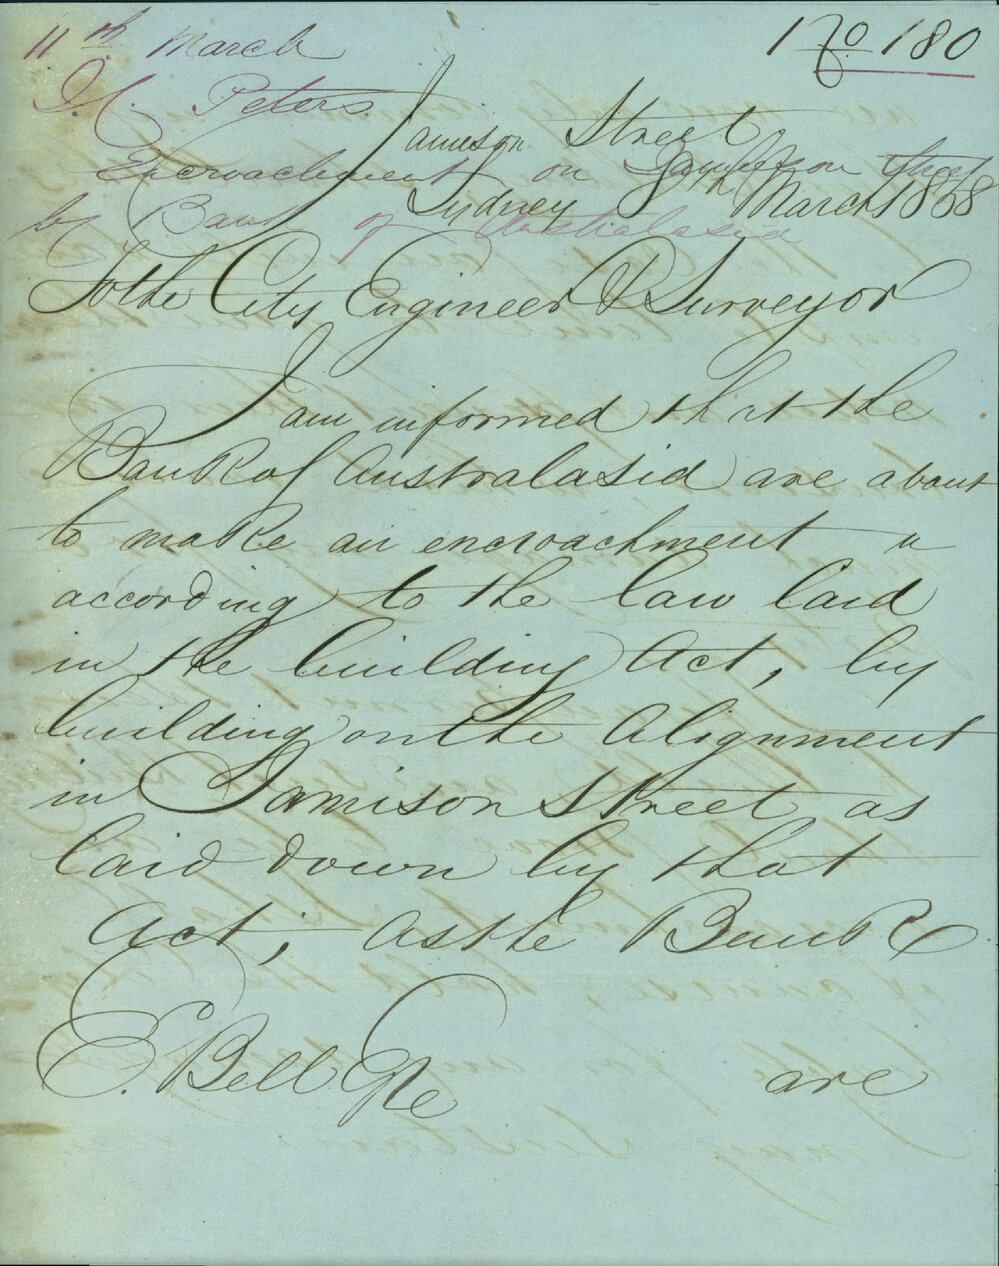 11th March
No 180
J. C. Peters
Encroachment on Jamieson Street
by Bank of Australasia
Jamieson Street
Sydney 8th March 1868
To the City Engineer & Surveyor
I am informed that the
Bank of Australasia are about
to make an encroachment
according to the law laid
in the building Act, by
building on the Alignment
in Jamison Street as
laid down by that
Act; as the Bank
E. Bell Esqre
are